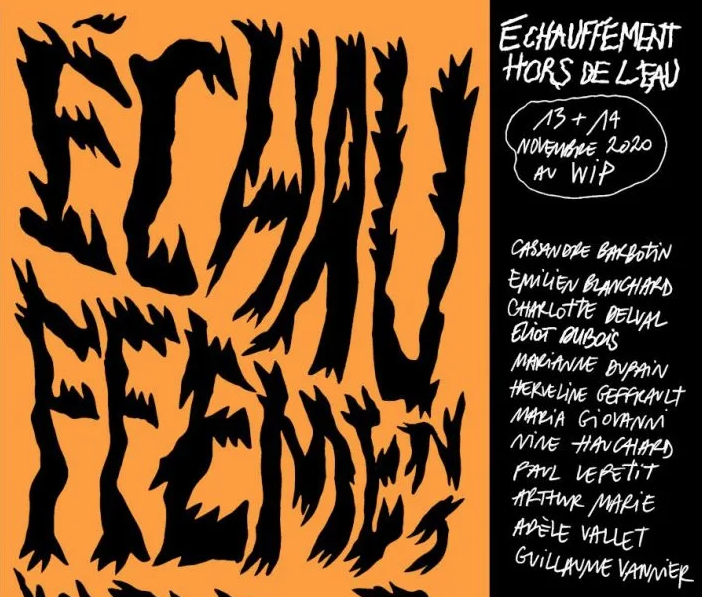 ÉCHAU
FFEMEN
T
ÉCHAUFFEMENT
HORS DE L'EAU
13 + 14
NOVEMBRE 2020
AU WIP
CASSANDRE BARBOTIN
EMILIEN BLANCHARD
CHARLOTTE DELVAL
ELIOT DUBOIS
MARIANNE DUPAIN
HERVELINE GEFFRAULT
MARIA GIOVANNI
NINE HAUCHARD
PAUL LEPETIT
ARTHUR MARIE
ADÈLE VALLET
GUILLAUME VANNIER